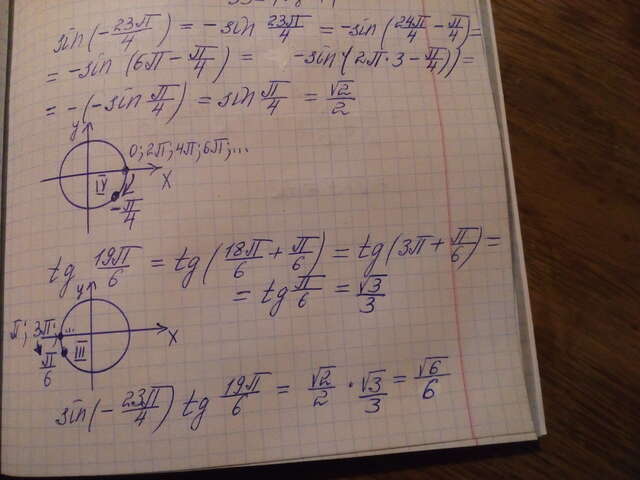 sin(-23π/4) = -sin 23π/4 = -sin(24π/4 - π/4) =
= -sin (6π - π/4) = -sin (2π·3 - π/4)) =
= -(-sin π/4) = sin π/4 = √2/2
y
0; 2π; 4π; 6π; ...
IV
x
-π/4
tg 19π/6 = tg(18π/6 + π/6) = tg(3π + π/6) =
= tg π/6 = √3/3
y
π; 3π; ...
x
III
π/6
sin(-23π/4) tg 19π/6 = √2/2 · √3/3 = √6/6